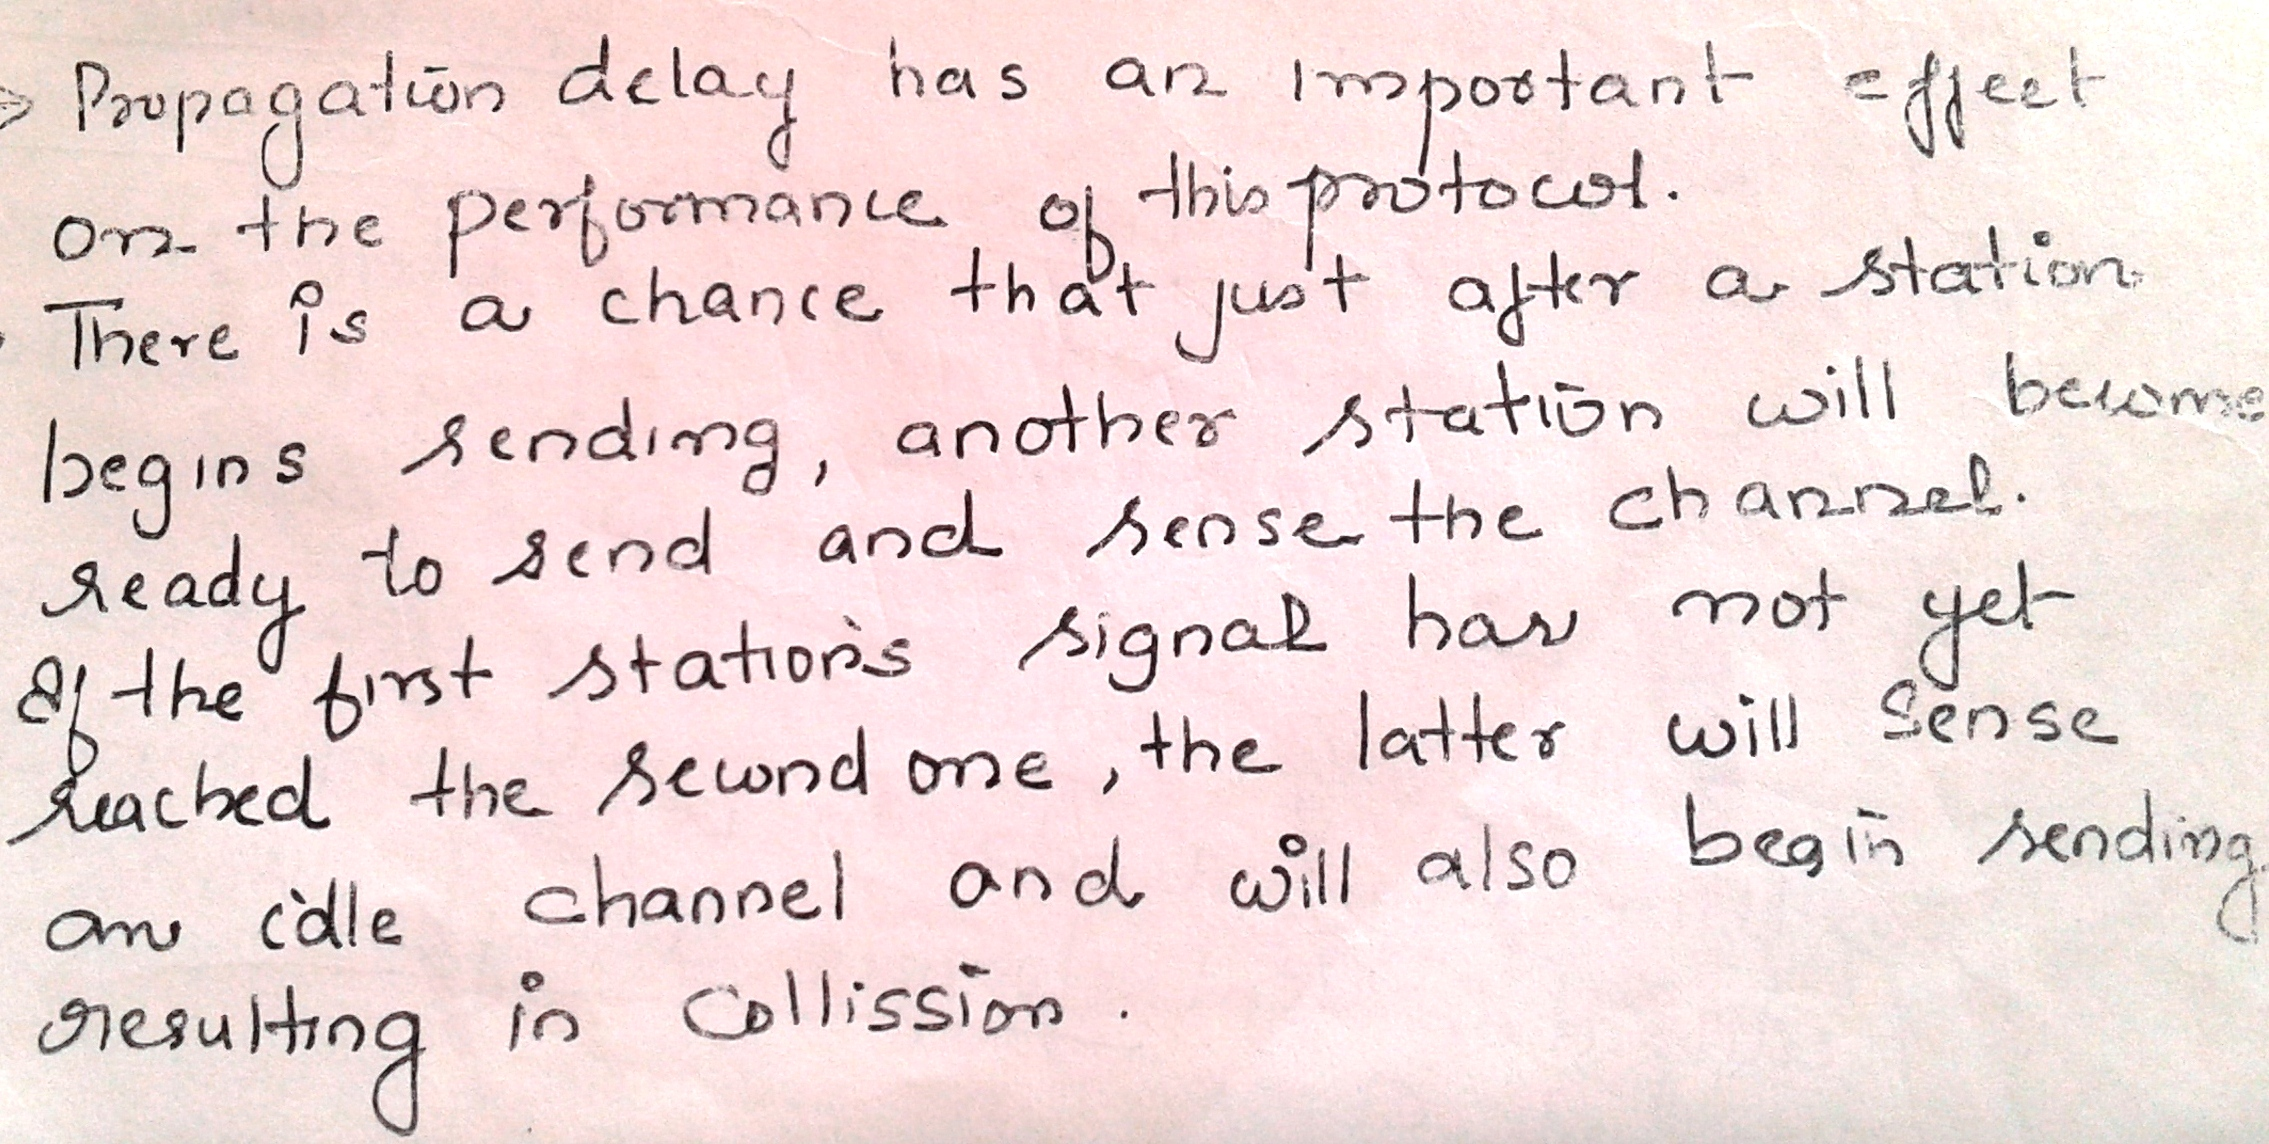 ⇒ Propagation delay has an important effect
on the performance of this protocol.
There is a chance that just after a station
begins sending, another station will become
ready to send and sense the channel.
If the first station's signal has not yet
reached the second one, the latter will sense
an idle channel and will also begin sending
resulting in Collission.